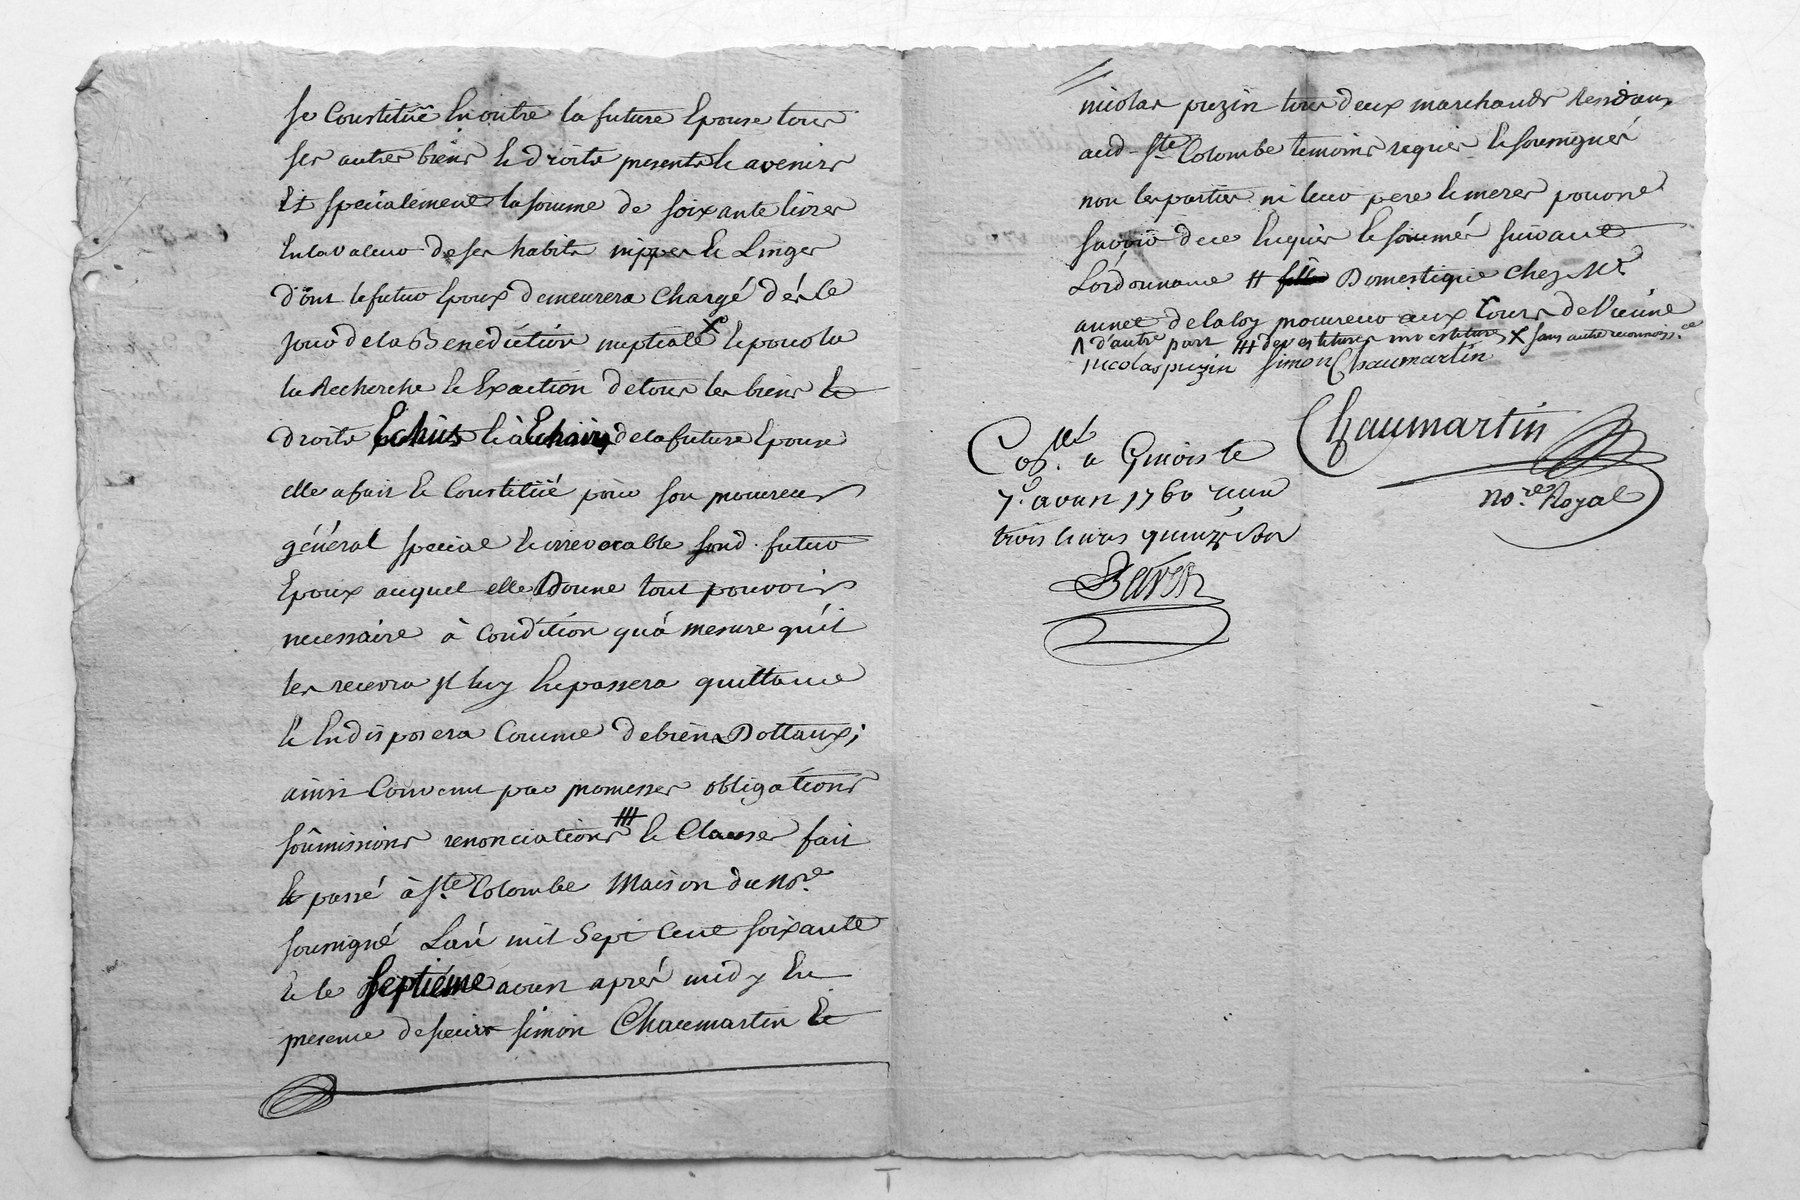 se Constitüe En outre la future Epouse tous
ses autres biens & droits presents & avenirs
Et specialement la somme de soixante livres
En la valeur de ses habits nippes & Linges
dont le futur Epoux demeurera Chargé dés le
jour de la Benediction nuptiale X & pour la
la Recherche & Exaction de tous les biens &
droits Echûs & à Echoir de la future Epouse
elle a fait & Constitüé pour son procureur
général special & irrevocable sond. futur
Epoux auquel elle Donne tout pouvoir
necessaire à Condition qu'à mesure qu'il
les recevra Il luy En passera quittance
& En disposera Comme de biens Dottaux;
ainsi Convenu par promesses obligations
soumissions renonciations /// & Clauses fait
& passé à Ste. Colombe Maison du No.re
sousigné L'an mil Sept Cent soixante
& le septiéme avril aprés midy En
presence de sieurs simon Chaumartin &
nicolas puzin tous deux marchands residans
aud. Ste. Colombe temoins requis & sousignés
non les parties ni leur pere & meres pour ne
savoir de ce Enquis & sommés suivant
L'ordonnance # Domestique Chez Mr.
annet delaloy procureur aux Cours de Vienne
Λ d'autre part /// devestitures investitures X sans autre reconnoiss.ce
nicolas puzin simon Chaumartin
Chaumartin
No.re Royal
Con.lé a Givors le
7. avril 1760 reçu
trois livres quinze sols